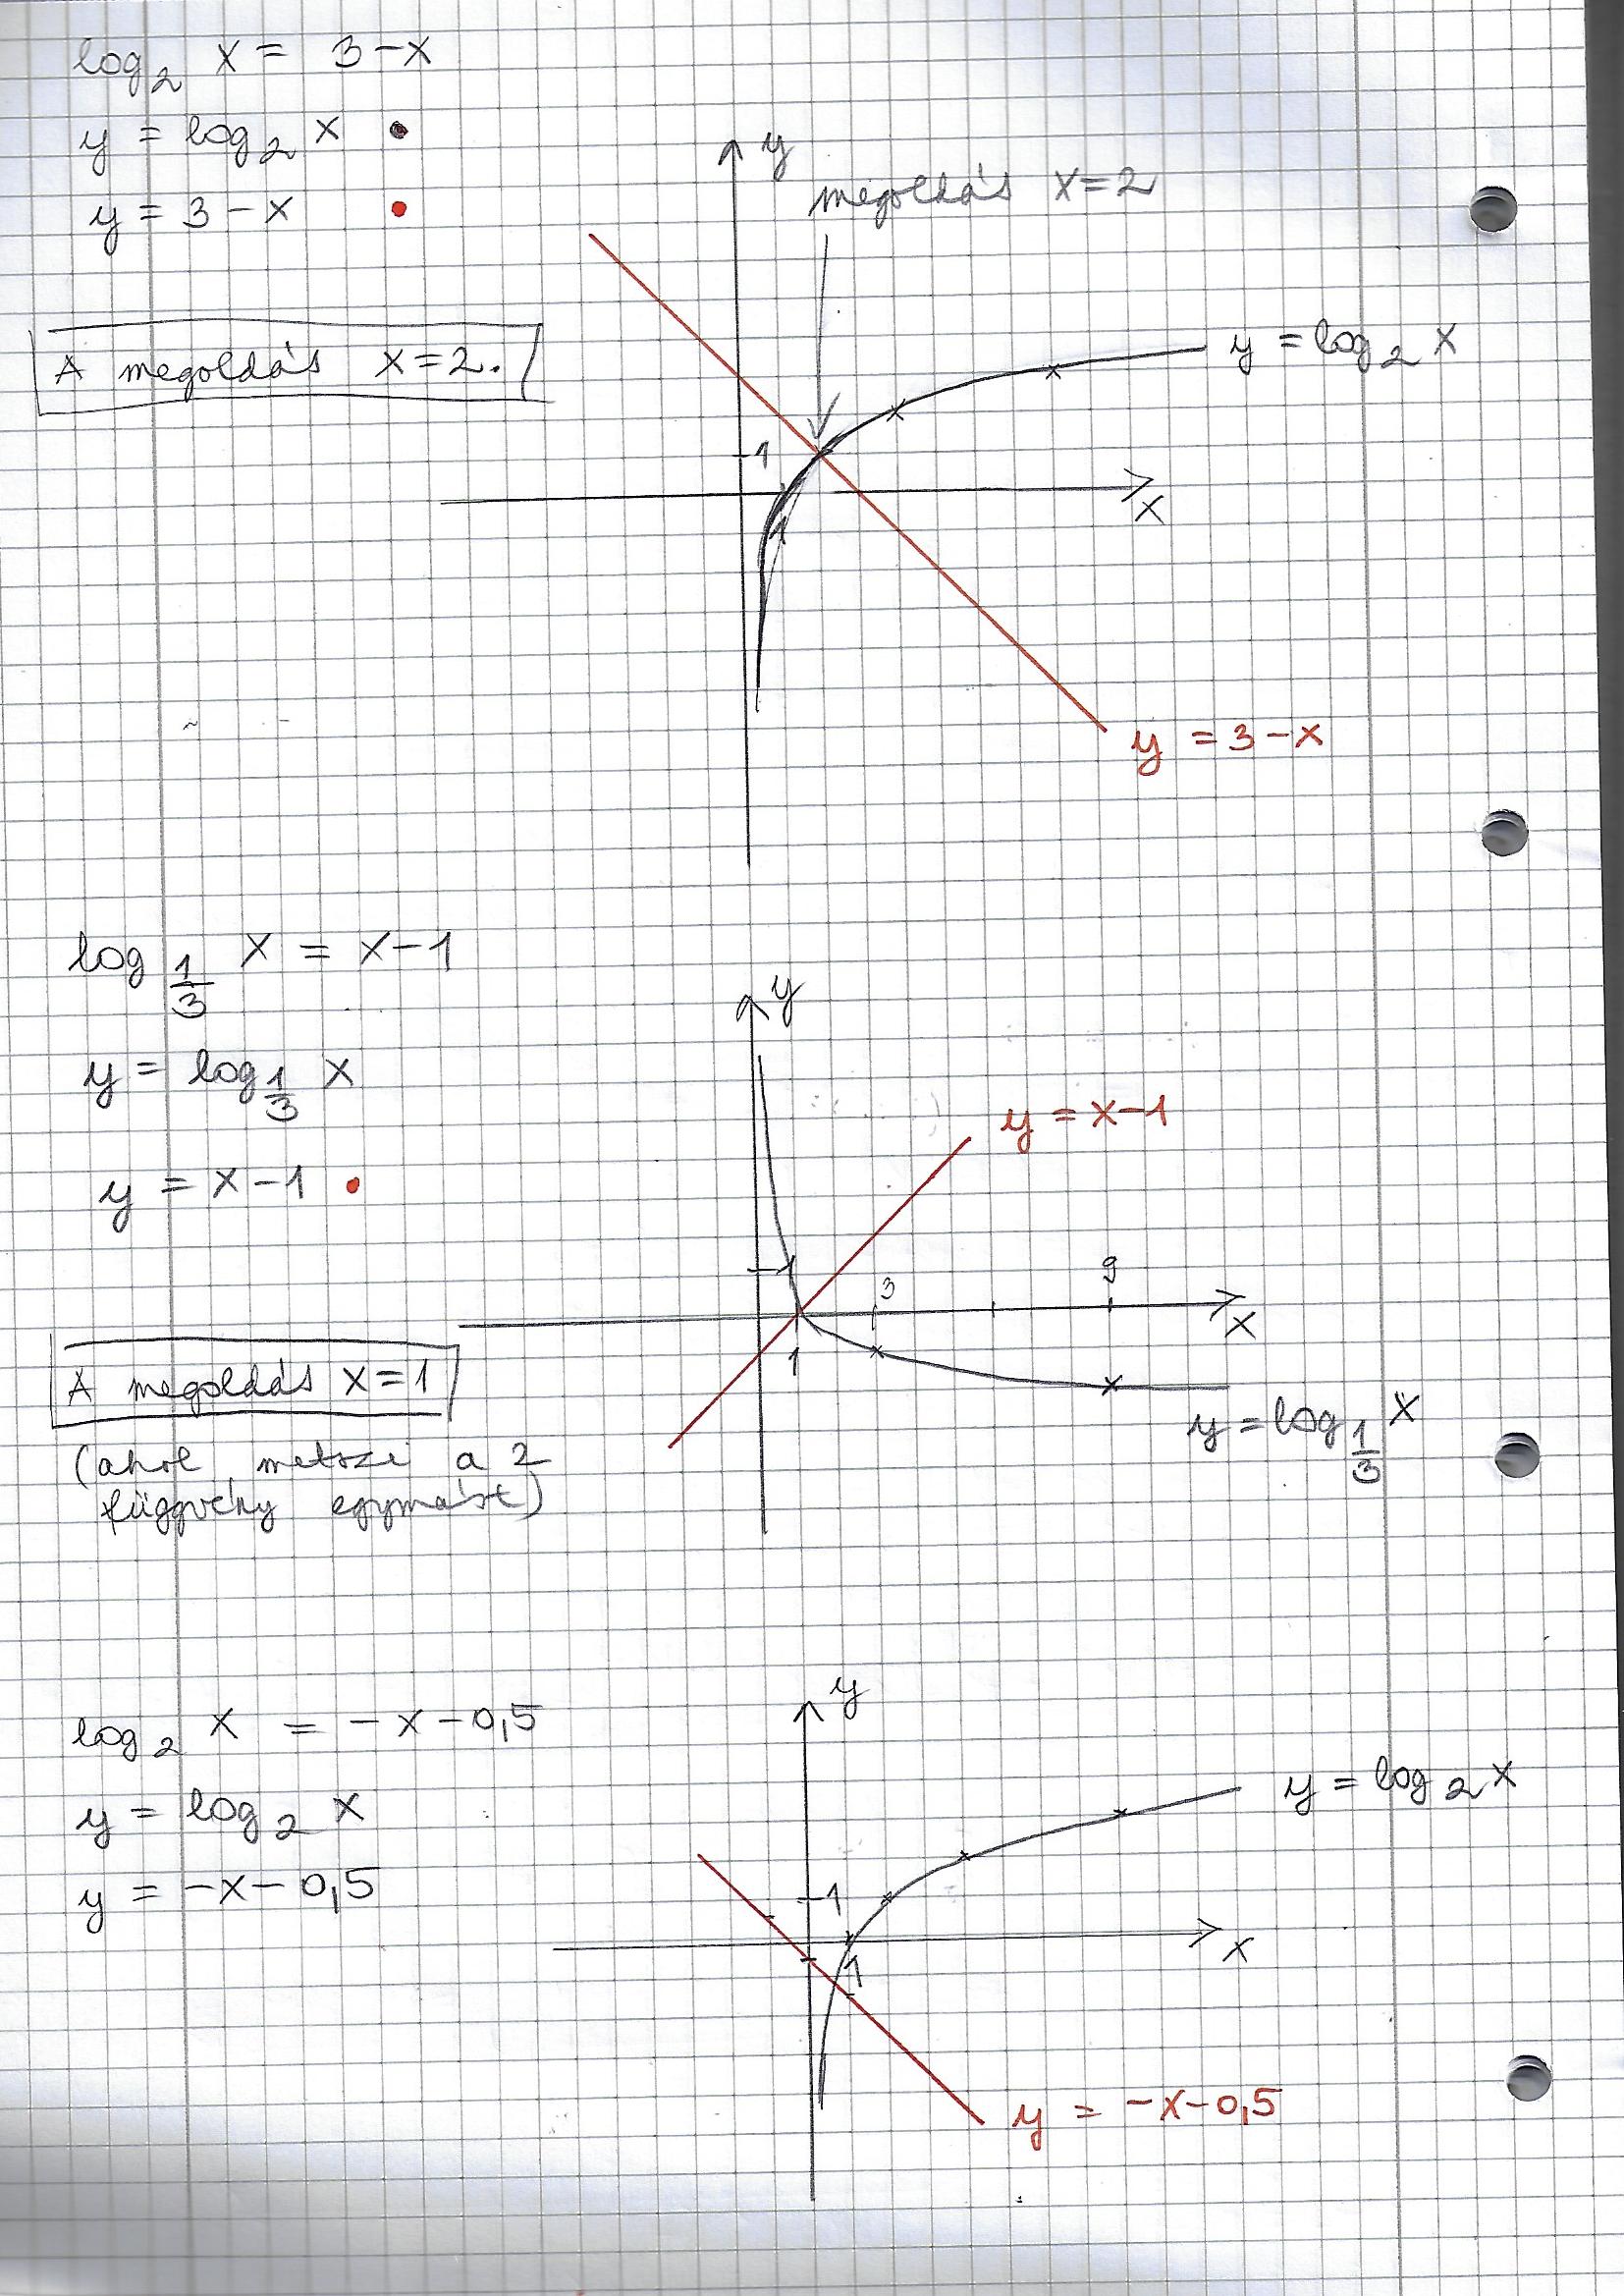 log₂ x = 3-x
y = log₂ x
y = 3-x
A megoldás x=2.
y
megoldás x=2
1
y = log₂ x
x
1
y = 3-x
log 1/3 x = x-1
y = log 1/3 x
y = x-1
A megoldás x=1
(ahol metszi a 2
függvény egymást)
y
y = x-1
1
3
9
x
1
y = log 1/3 x
log₂ x = -x-0,5
y = log₂ x
y = -x-0,5
y
y = log₂ x
1
x
1
y = -x-0,5